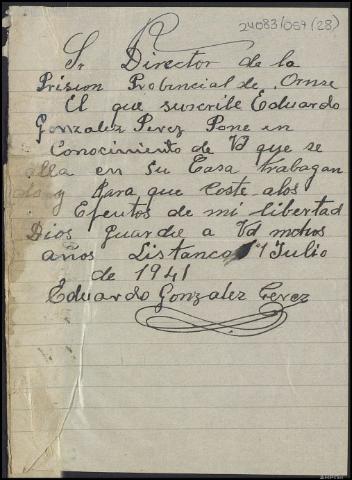 24083/057 (28)
Sr Director de la
Prision Probincial de Ornse
El que suscribe Eduardo
Gonzalez Perez Pone en
Conocimiento de Vd qye se
alla en su Casa trabagan
do y Para que coste alos
Efeutos de mi libertad
Dios guarde a Vd mchos
años Listanco 1 Julio
de 1941
Eduardo Gonzalez Perez